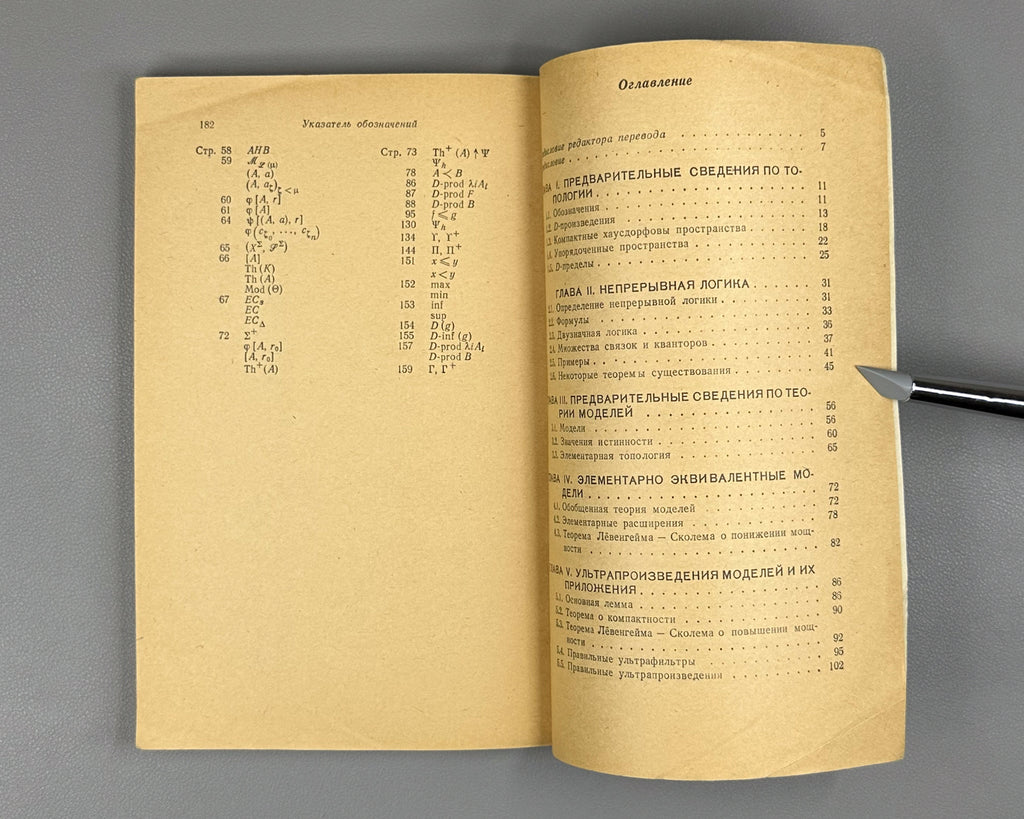 182
Указатель обозначений
Стр. 58 AHB
59 ℳ_ℒ(μ)
(A, a)
(A, a_ζ)_ζ<μ
60 φ [A, r]
61 φ [A]
64 ψ [(A, a), r]
φ (c_ζ₀, ..., c_ζₙ)
65 (X^Σ, 𝒮^Σ)
66 [A]
Th (K)
Th (A)
Mod (Θ)
67
EC
EC_Δ
72 Σ⁺
φ [A, r₀]
[A, r₀]
Th⁺(A)
Стр. 73 Th⁺ (A) ↑ Ψ
Ψ_h
78 A ≺ B
86 D-prod λiA_i
87 D-prod F
88 D-prod B
95 f ⩽ g
130 Ψ_h
134 ϒ, ϒ⁺
144 Π, Π⁺
151 x ⩽ y
x < y
152 max
min
153 inf
sup
154 D (g)
155 D-inf (g)
157 D-prod λiA_i
D-prod B
159 Γ, Γ⁺
Оглавление
редактора перевода . . . . . . . . 5
. . . . . . . . . . . . . . . . 7
I. ПРЕДВАРИТЕЛЬНЫЕ СВЕДЕНИЯ ПО ТО-
ПОЛОГИИ . . . . . . . . . . . . 11
1.1. Обозначения . . . . . . . . . . . . 11
1.2. D-произведения . . . . . . . . . . . . 13
1.3. Компактные хаусдорфовы пространства . . . . 18
1.4. Упорядоченные пространства . . . . . . . . 22
1.5. D-пределы . . . . . . . . . . . . 25
ГЛАВА II. НЕПРЕРЫВНАЯ ЛОГИКА . . . . . . . 31
2.1. Определение непрерывной логики . . . . . . . 31
2.2. Формулы . . . . . . . . . . . . 33
2.3. Двузначная логика . . . . . . . . . . . . 36
2.4. Множества связок и кванторов . . . . . . . . 37
2.5. Примеры . . . . . . . . . . . . 41
2.6. Некоторые теоремы существования . . . . . . . 45
ГЛАВА III. ПРЕДВАРИТЕЛЬНЫЕ СВЕДЕНИЯ ПО ТЕО-
РИИ МОДЕЛЕЙ . . . . . . . . . . . . 56
3.1. Модели . . . . . . . . . . . . 56
3.2. Значения истинности . . . . . . . . . . . . 60
3.3. Элементарная топология . . . . . . . . . . 65
IV. ЭЛЕМЕНТАРНО ЭКВИВАЛЕНТНЫЕ МО-
ДЕЛИ . . . . . . . . . . . . 72
4.1. Обобщенная теория моделей . . . . . . . . 72
4.2. Элементарные расширения . . . . . . . . . 78
4.3. Теорема Лёвенгейма — Сколема о понижении мощ-
ности . . . . . . . . . . . . 82
ГЛАВА V. УЛЬТРАПРОИЗВЕДЕНИЯ МОДЕЛЕЙ И ИХ
ПРИЛОЖЕНИЯ . . . . . . . . . . . . 86
5.1. Основная лемма . . . . . . . . . . . . 86
5.2. Теорема о компактности . . . . . . . . . . 90
5.3. Теорема Лёвенгейма — Сколема о повышении мощ-
ности . . . . . . . . . . . . 92
5.4. Правильные ультрафильтры . . . . . . . . 95
5.5. Правильные ультрапроизведения . . . . . . . 102